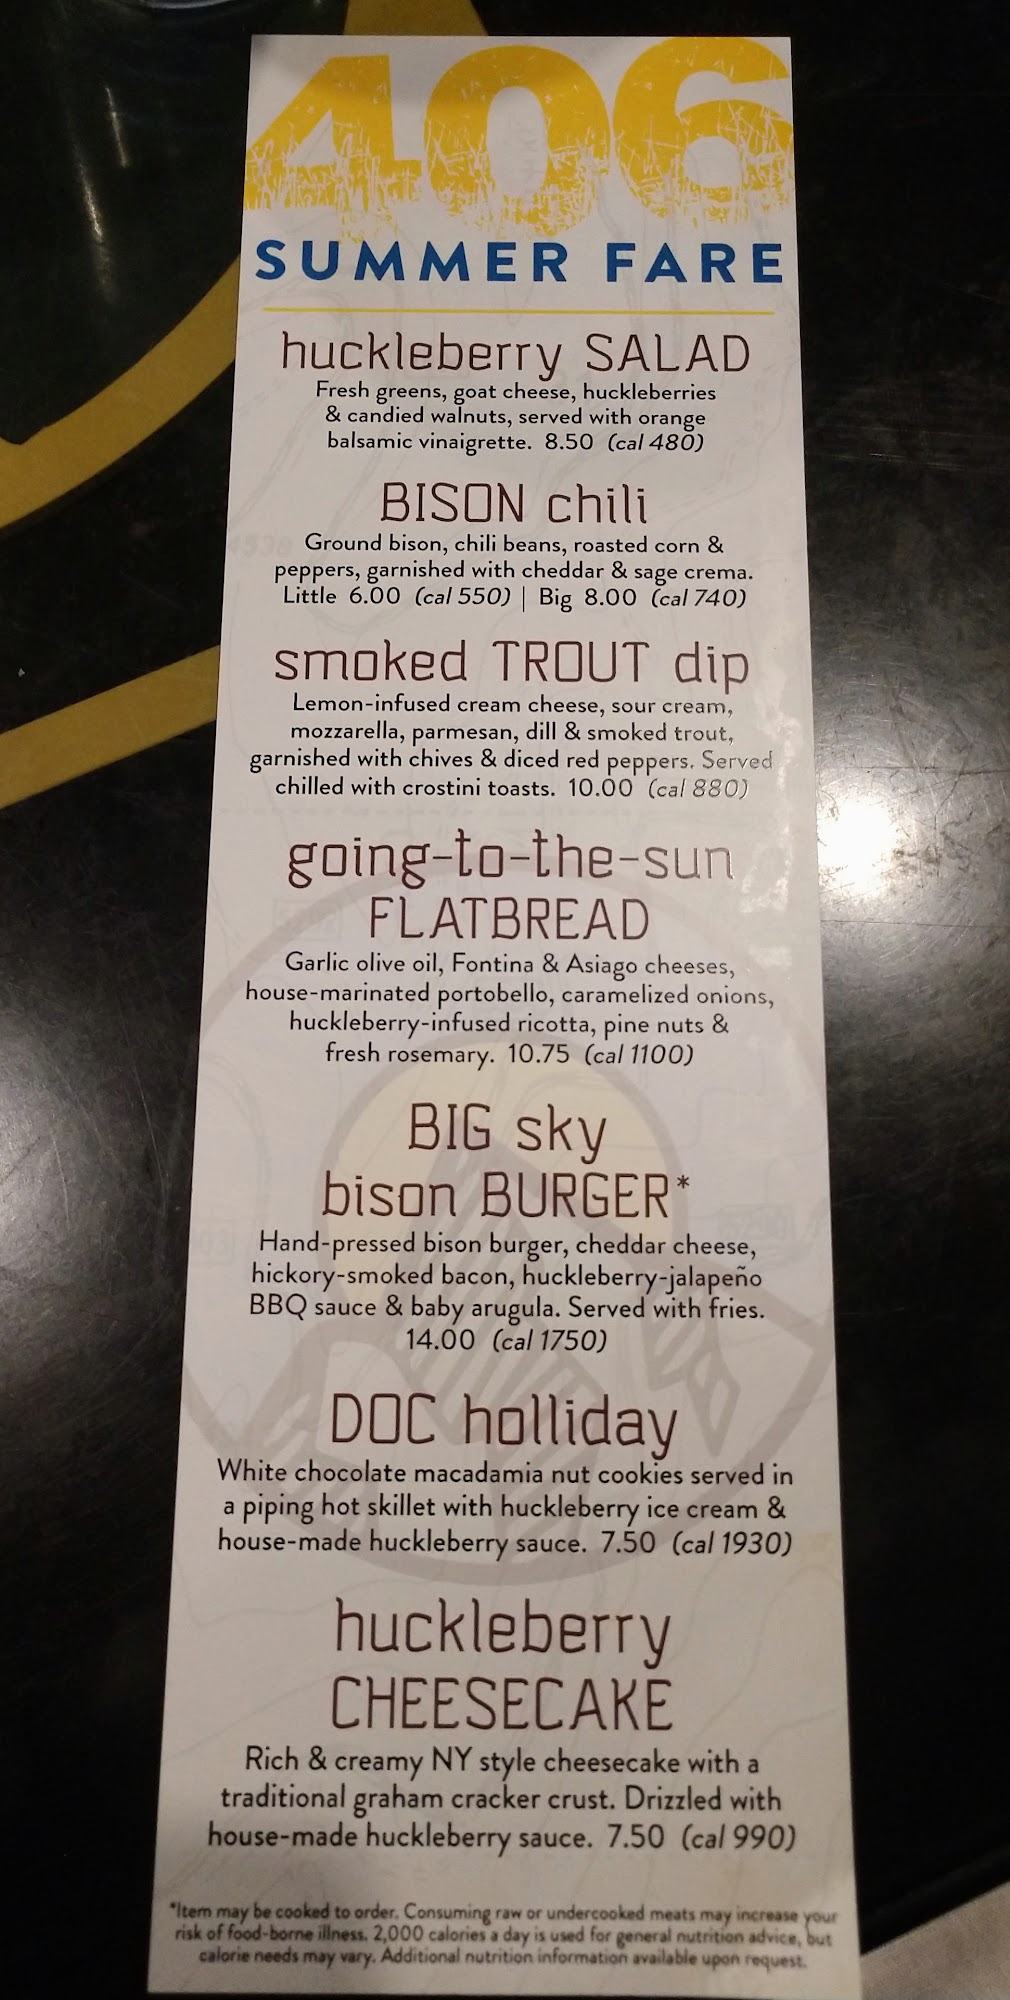 406
SUMMER FARE
huckleberry SALAD
Fresh greens, goat cheese, huckleberries
& candied walnuts, served with orange
balsamic vinaigrette. 8.50 (cal 480)
BISON chili
Ground bison, chili beans, roasted corn &
peppers, garnished with cheddar & sage crema.
Little 6.00 (cal 550) | Big 8.00 (cal 740)
smoked TROUT dip
Lemon-infused cream cheese, sour cream,
mozzarella, parmesan, dill & smoked trout,
garnished with chives & diced red peppers. Served
chilled with crostini toasts. 10.00 (cal 880)
going-to-the-sun
FLATBREAD
Garlic olive oil, Fontina & Asiago cheeses,
house-marinated portobello, caramelized onions,
huckleberry-infused ricotta, pine nuts &
fresh rosemary. 10.75 (cal 1100)
BIG sky
bison BURGER*
Hand-pressed bison burger, cheddar cheese,
hickory-smoked bacon, huckleberry-jalapeño
BBQ sauce & baby arugula. Served with fries.
14.00 (cal 1750)
DOC holliday
White chocolate macadamia nut cookies served in
a piping hot skillet with huckleberry ice cream &
house-made huckleberry sauce. 7.50 (cal 1930)
huckleberry
CHEESECAKE
Rich & creamy NY style cheesecake with a
traditional graham cracker crust. Drizzled with
house-made huckleberry sauce. 7.50 (cal 990)
*Item may be cooked to order. Consuming raw or undercooked meats may increase your
risk of food-borne illness. 2,000 calories a day is used for general nutrition advice, but
calorie needs may vary. Additional nutrition information available upon request.